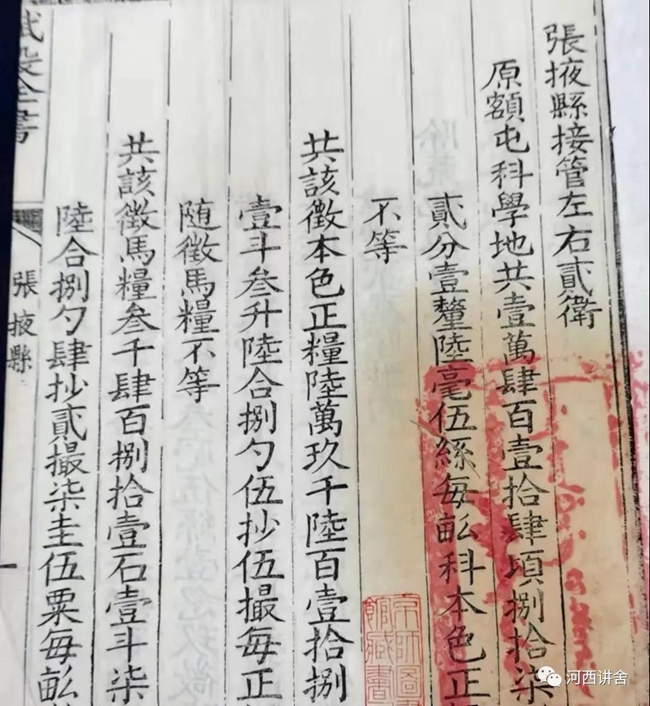 張掖縣接管左右貳衛
原額屯科學地共壹萬肆百壹拾肆頃捌拾柒
貳分壹釐陸毫伍絲每畝科本色正
不等
共該徵本色正糧陸萬玖千陸百壹拾捌
壹斗叁升陸合捌勺伍抄伍撮每正
随徵馬糧不等
共該徵馬糧叁千肆百捌拾壹石壹斗柒
陸合捌勺肆抄貳撮柒圭伍粟每畝
賦役全書
張掖縣
京師圖書
館藏書
河西讲舍